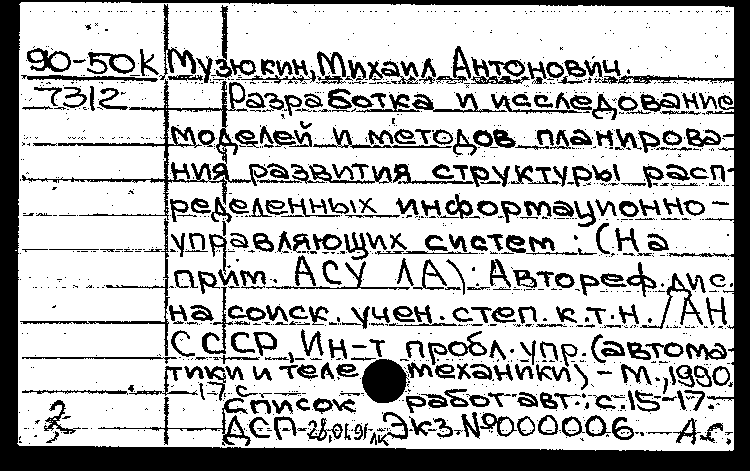 90-50К Музюкин, Михаил Антонович.
7312 Разработка и исследование
моделей и методов планирова-
ния развития структуры расп-
ределенных информационно-
управляющих систем : (На
прим. АСУ ЛА) : Автореф. дис.
на соиск. учен. степ. к.т.н. / АН
СССР, Ин-т пробл. упр. (автома-
тики и телемеханики) - М., 1990
- 17 с
Список работ авт.: с. 15-17.
2 ДСП Экз. №000006. А.С.